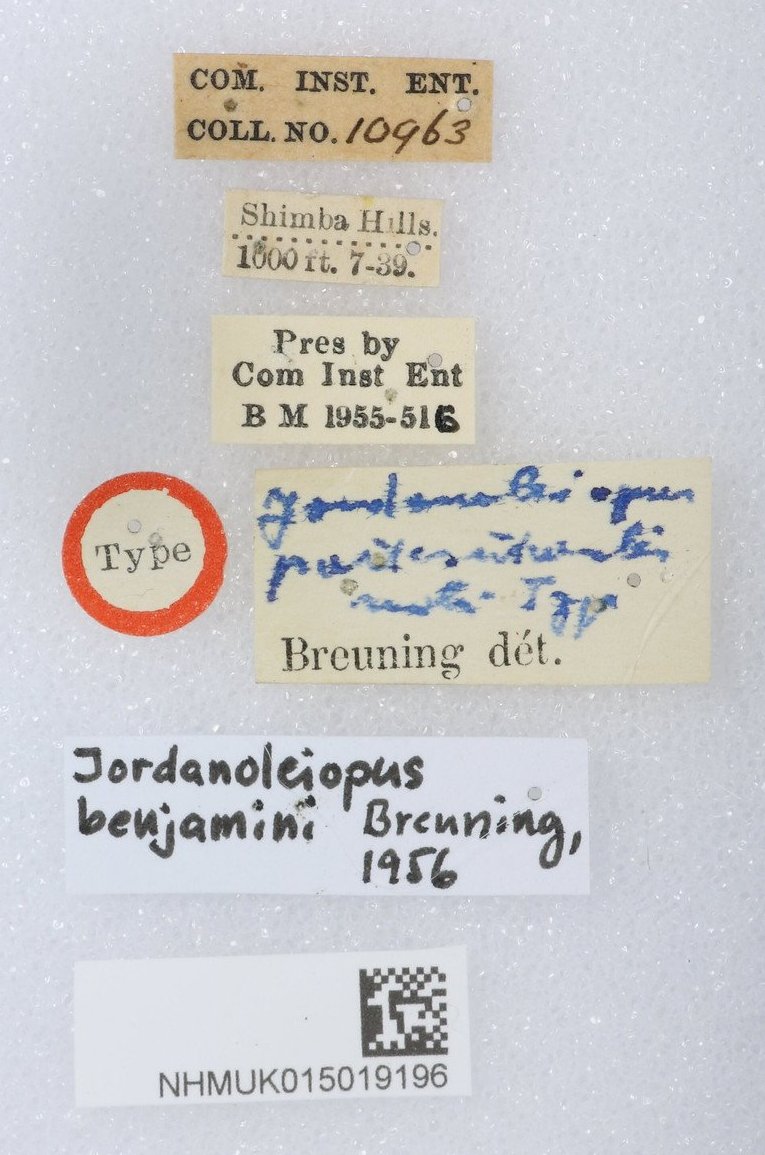 COM. INST. ENT.
COLL. NO. 10963
Shimba Hills.
1000 ft. 7-39.
Pres by
Com Inst Ent
B M 1955-516
Type
Jordanoleiopus
Typ
Breuning dét.
Jordanoleiopus
benjamini Breuning,
1956
NHMUK015019196